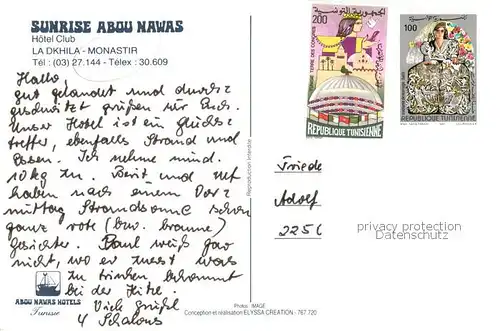 SUNRISE ABOU NAWAS
Hôtel Club
LA DKHILA - MONASTIR
Tél : (03) 27.144 - Télex : 30.609
Hallo,
gut gelandet und durch-
geschwitzt grüßen wir Euch.
Unser Hotel ist ein Glücks-
treffer, ebenfalls Strand und
Essen. Ich nehme mind.
10 kg zu. Berit und Ulf
haben nach einem Vor-
mittag Strandsonne schon
ganz rote (bzw. braune)
Gesichter. Paul weiß gar
nicht, wo er zuerst was
zu trinken bekommt
bei der Hitze.
Viele Grüße
4
ABOU NAWAS HOTELS
Tunisie
Reproduction Interdite
Photo: IMAGE
Conception et réalisation ELYSSA CREATION - 767.720
200
TERRE DES CONGRES
REPUBLIQUE TUNISIENNE
100
REPUBLIQUE TUNISIENNE
Friede
Adolf
2251
privacy protection
Datenschutz